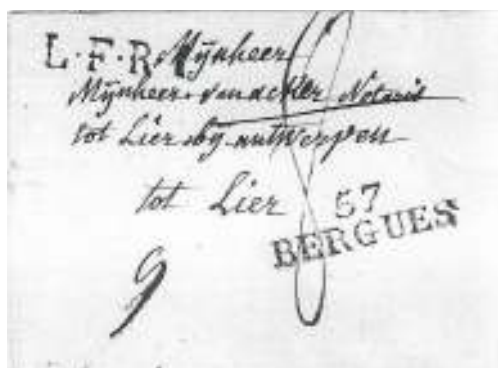 L.F.R.1 Mynheer
Mynheer vandeker Notaris
tot Lier by antwerpen
tot Lier
57
BERGUES
9